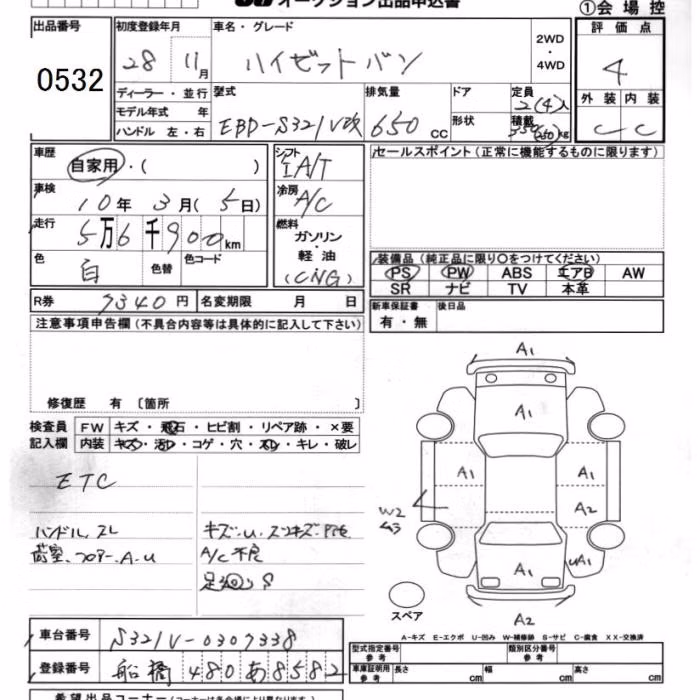 オークション出品申込書
①会場控
出品番号
0532
初度登録年月
28 11月
車名・グレード
ハイゼットバン
2WD・4WD
評価点
4
ディーラー・並行
モデル年式 年
ハンドル 左・右
型式
EBD-S321V改
排気量
650 cc
ドア
形状
定員
2(4)人
積載
350(250)kg
外装 内装
C C
車歴
自家用・( )
シフト
IA/T
セールスポイント(正常に機能するものに限ります)
車検
10年 3月(5日)
冷房
A/C
走行
5万6千900km
燃料
ガソリン・軽油
(CNG)
色
白
色替
色コード
装備品(純正品に限り○をつけてください)
PS PW ABS エアB AW
SR ナビ TV 本革
R券 7340円
名変期限 月 日
新車保証書
有・無
後日品
注意事項申告欄(不具合内容等は具体的に記入して下さい)
修復歴 有 〔箇所
検査員記入欄
FW キズ・飛石・ヒビ割・リペア跡・×要
内装 キズ・汚れ・コゲ・穴・スレ・キレ・破レ
ETC
ハンドル、スレ
荷室、フロアー、A.U
A/C不良
A1
A1
A1
A1
A2
W2
A1
UA1
A2
スペア
A-キズ E-エクボ U-凹み W-補修跡 S-サビ C-腐食 XX-交換済
車台番号
S321V-0307338
登録番号
船橋 480あ8582
型式指定番号
参考
類別区分番号
参考
車庫証明記入欄
参考
長さ cm
幅 cm
高さ cm
希望出品コーナー